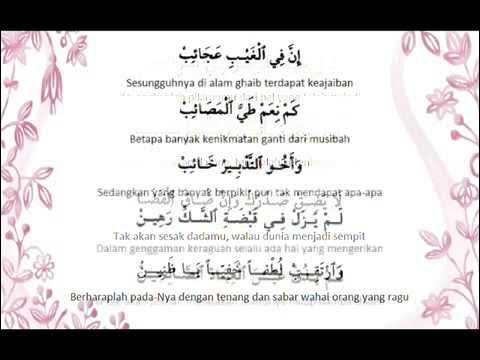 إِنَّ فِي الْغَيْبِ عَجَائِبْ
Sesungguhnya di alam ghaib terdapat keajaiban
كَمْ نِعَمْ طَيَّ الْمَصَائِبْ
Betapa banyak kenikmatan ganti dari musibah
وَأَخُو التَّدْبِيرْ خَائِبْ
Sedangkan yang banyak berpikir pun tak mendapat apa-apa
لَا يَضِقْ صَدْرُكْ وَإِنْ ضَاقَ الْفَضَا
لَمْ يَزَلْ فِي قَبْضَةِ الشَّكِّ رَهِينْ
Tak akan sesak dadamu, walau dunia menjadi sempit
Dalam genggaman keraguan selalu ada hal yang mengerikan
وَارْتَقِبْ لُطْفاً خَفِيّاً يَا ظَنِينْ
Berharaplah pada-Nya dengan tenang dan sabar wahai orang yang ragu